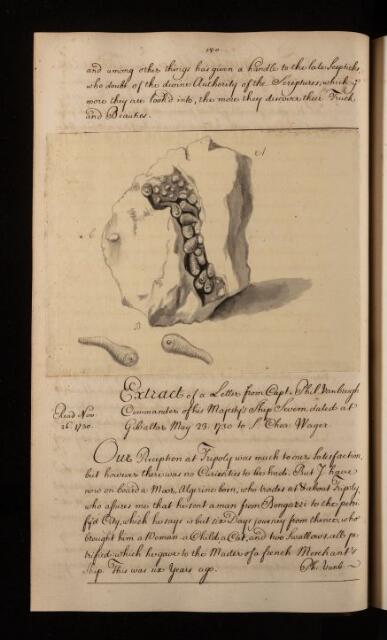 180
and among other things has given a handle to the late Scepticks,
who doubt of the divine Authority of the Scriptures, which ye
more they are look'd into, the more they discover their Truth
and Beauties.
A
C
B
Extract of a Letter from Capt. Phil. Vanburgh
Commander of his Majesty's Ship Severn, dated at
Gibaltar May 23. 1730 to Sr. Char. Wager.
Read Nov.
26. 1730.
Our Reception at Tripoly was much to our Satisfaction,
but however there was no Curiosities to be had. But I have
now on board a Moor, Algerine born, who trades at & about Tripoly,
who assures me that he sent a man from Bengazzi to the petri-
fy'd City, which he says is but six Days journey from thence, who
brought him a Woman a Child, a Cat, and two Swallows, all pe-
trified which he gave to the Master of a french Merchant's
Ship. This was six Years ago.
Ph: Vanb